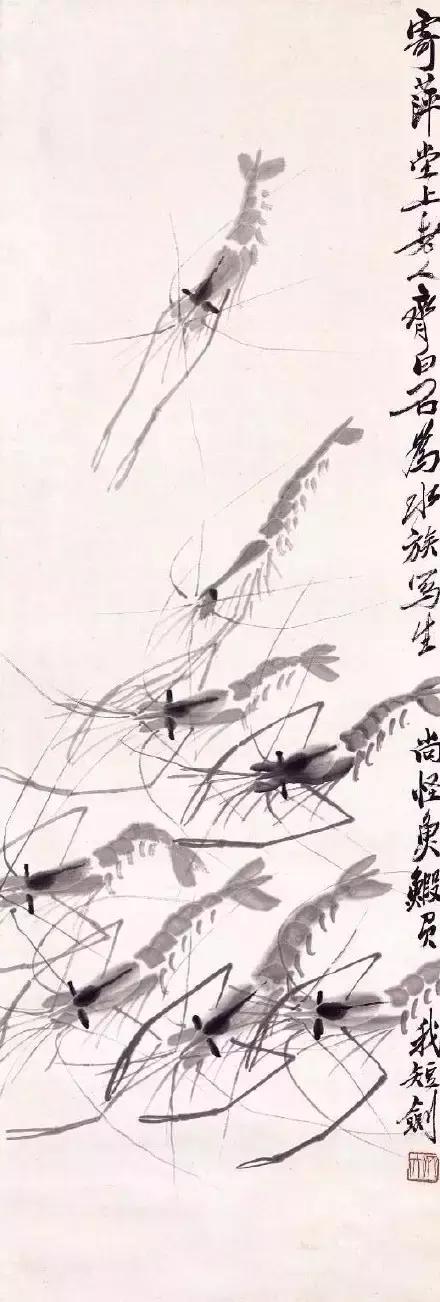 寄萍堂上老人齊白石為水族写生尚怪魚鰕我短劍